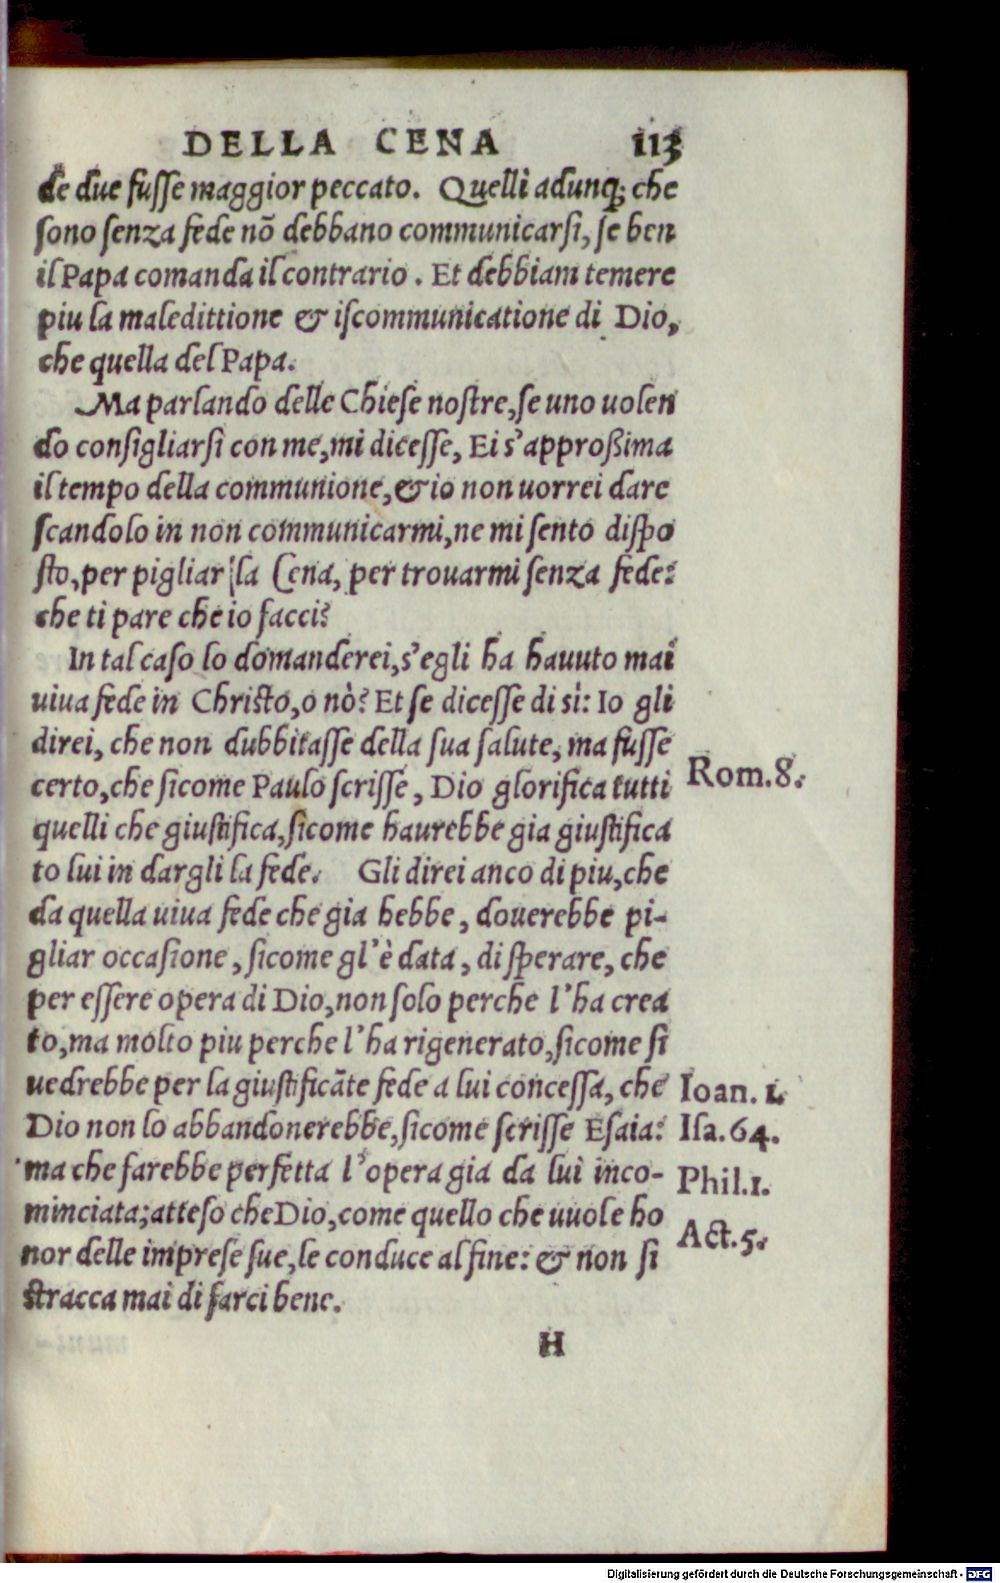 DELLA CENA 113
de due fusse maggior peccato. Quelli adunq; che
sono senza fede nõ debbano communicarsi, se ben
il Papa comanda il contrario. Et debbiam temere
piu la maledittione & iscommunicatione di Dio,
che quella del Papa.
Ma parlando delle Chiese nostre, se uno uolen
do consigliarsi con me, mi dicesse, Ei s'approßima
il tempo della communione, & io non uorrei dare
scandolo in non communicarmi, ne mi sento dispo
sto, per pigliar la Cena, per trouarmi senza fede:
che ti pare che io facci?
In tal caso lo domanderei, s'egli ha hauuto mai
uiua fede in Christo, o nò? Et se dicesse di sì: Io gli
direi, che non dubbitasse della sua salute, ma fusse
certo, che sicome Paulo scrisse, Dio glorifica tutti
Rom.8.
quelli che giustifica, sicome haurebbe gia giustifica
to lui in dargli la fede. Gli direi anco di piu, che
da quella uiua fede che gia hebbe, douerebbe pi-
gliar occasione, sicome gl'è data, di sperare, che
per essere opera di Dio, non solo perche l'ha crea
to, ma molto piu perche l'ha rigenerato, sicome si
uedrebbe per la giustificãte fede a lui concessa, che
Ioan. 1.
Dio non lo abbandonerebbe, sicome scrisse Esaia:
Isa.64.
ma che farebbe perfetta l'opera gia da lui inco-
Phil.1.
minciata; atteso che Dio, come quello che uuole ho
Act.5.
nor delle imprese sue, le conduce al fine: & non si
stracca mai di farci bene.
H
Digitalisierung gefördert durch die Deutsche Forschungsgemeinschaft - DFG